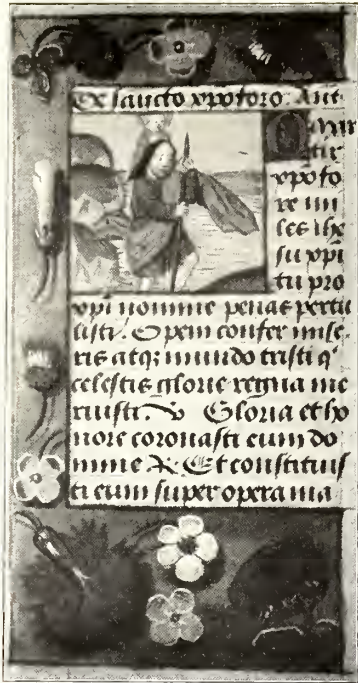 De sancto xpoforo: Ant
O Mar
tir
xpofo
re mi
les ihe
su xpi
tu pro
xpi nomine penas pertu
listi. Opem confer mise
ris atqʒ mundo tristi q'
celestis glorie regna me
ruisti. V Gloria et ho
nore coronasti eum do
mine R. Et constituis
ti eum super opera ma